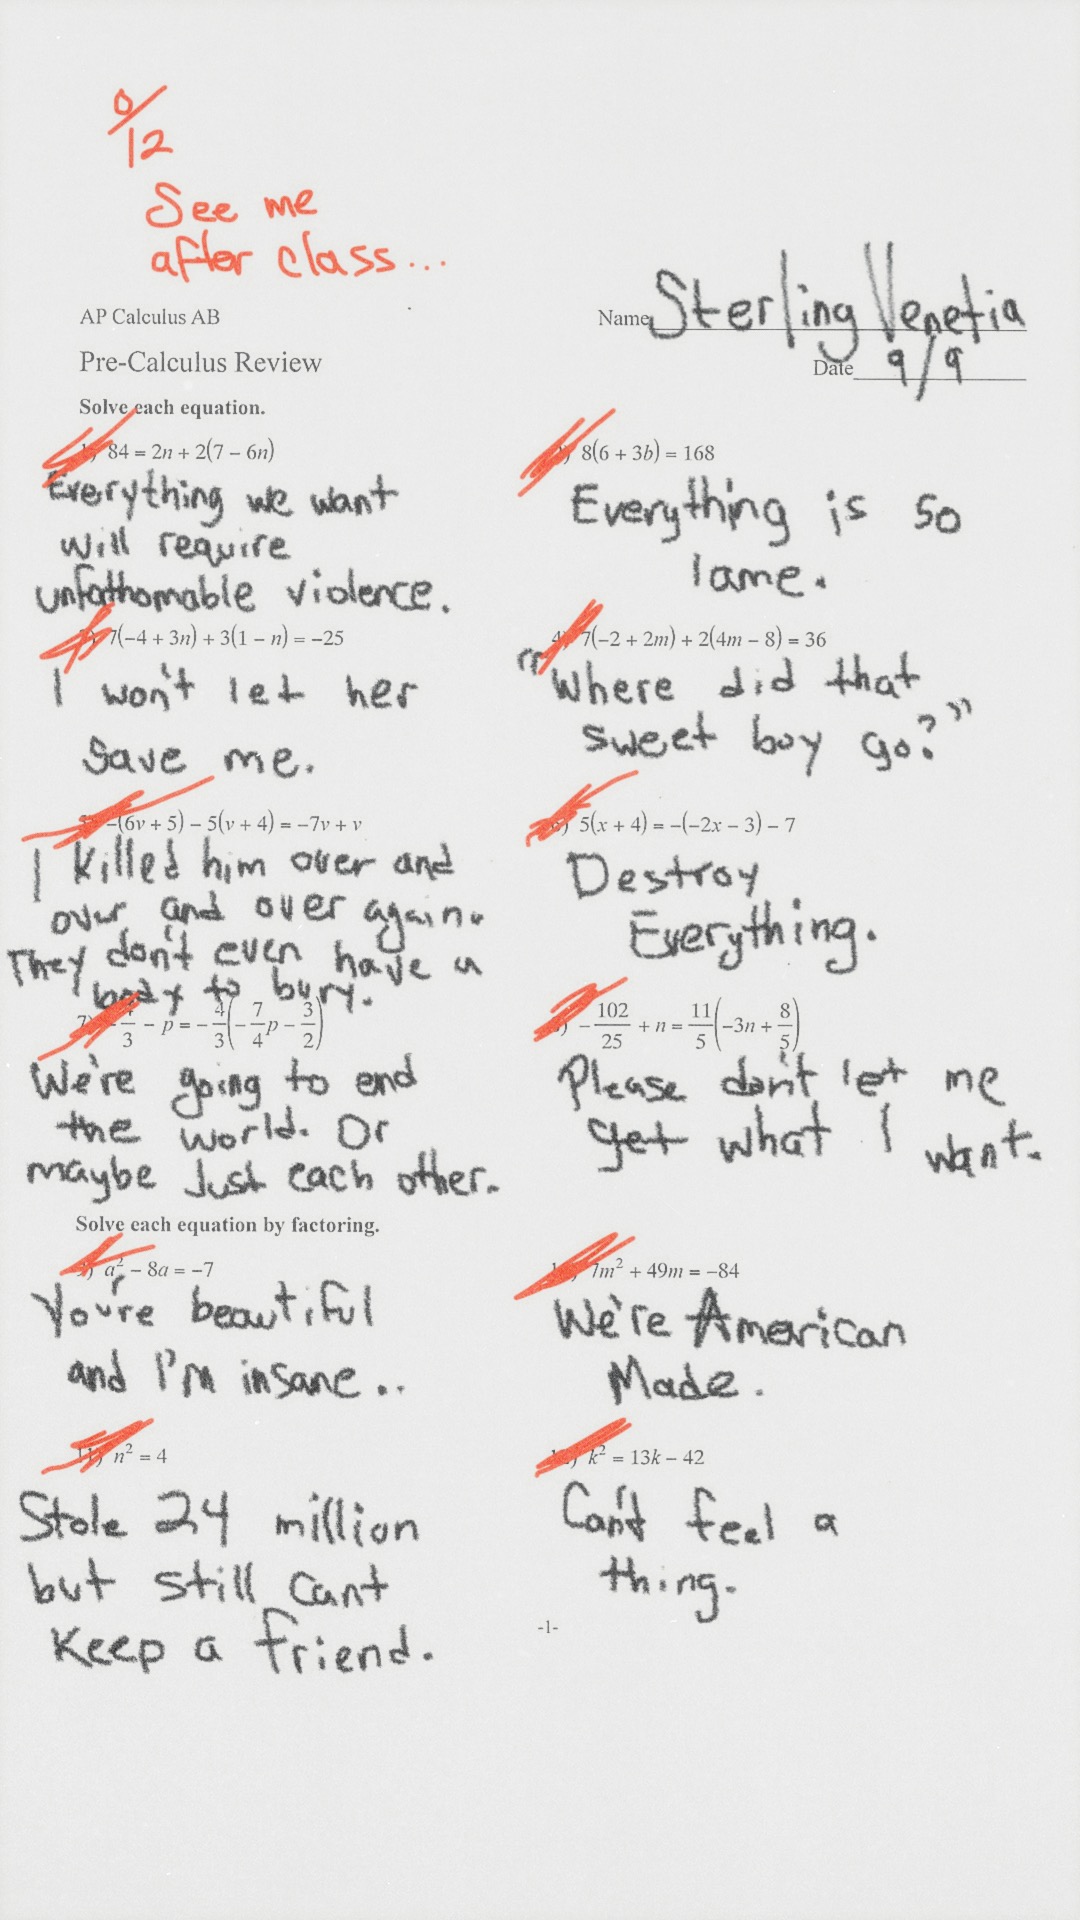 0/12
See me
after class...
AP Calculus AB
Name Sterling Venetia
Pre-Calculus Review
Date 9/9
Solve each equation.
1) 84 = 2n + 2(7 − 6n)
Everything we want
will require
unfathomable violence.
2) 8(6 + 3b) = 168
Everything is so
lame.
3) 7(−4 + 3n) + 3(1 − n) = −25
I won't let her
save me.
4) 7(−2 + 2m) + 2(4m − 8) = 36
"Where did that
sweet boy go?"
5) −(6v + 5) − 5(v + 4) = −7v + v
I killed him over and
over and over again.
They don't even have a
body to bury.
6) 5(x + 4) = −(−2x − 3) − 7
Destroy
Everything.
7) 4/3 − p = −4/3(−7/4p − 3/2)
We're going to end
the world. Or
maybe Just each other.
8) −102/25 + n = 11/5(−3n + 8/5)
Please don't let me
get what I want.
Solve each equation by factoring.
9) a² − 8a = −7
You're beautiful
and I'm insane..
10) 7m² + 49m = −84
We're American
Made.
11) n² = 4
Stole 24 million
but still cant
Keep a friend.
12) k² = 13k − 42
Can't feel a
thing.
-1-